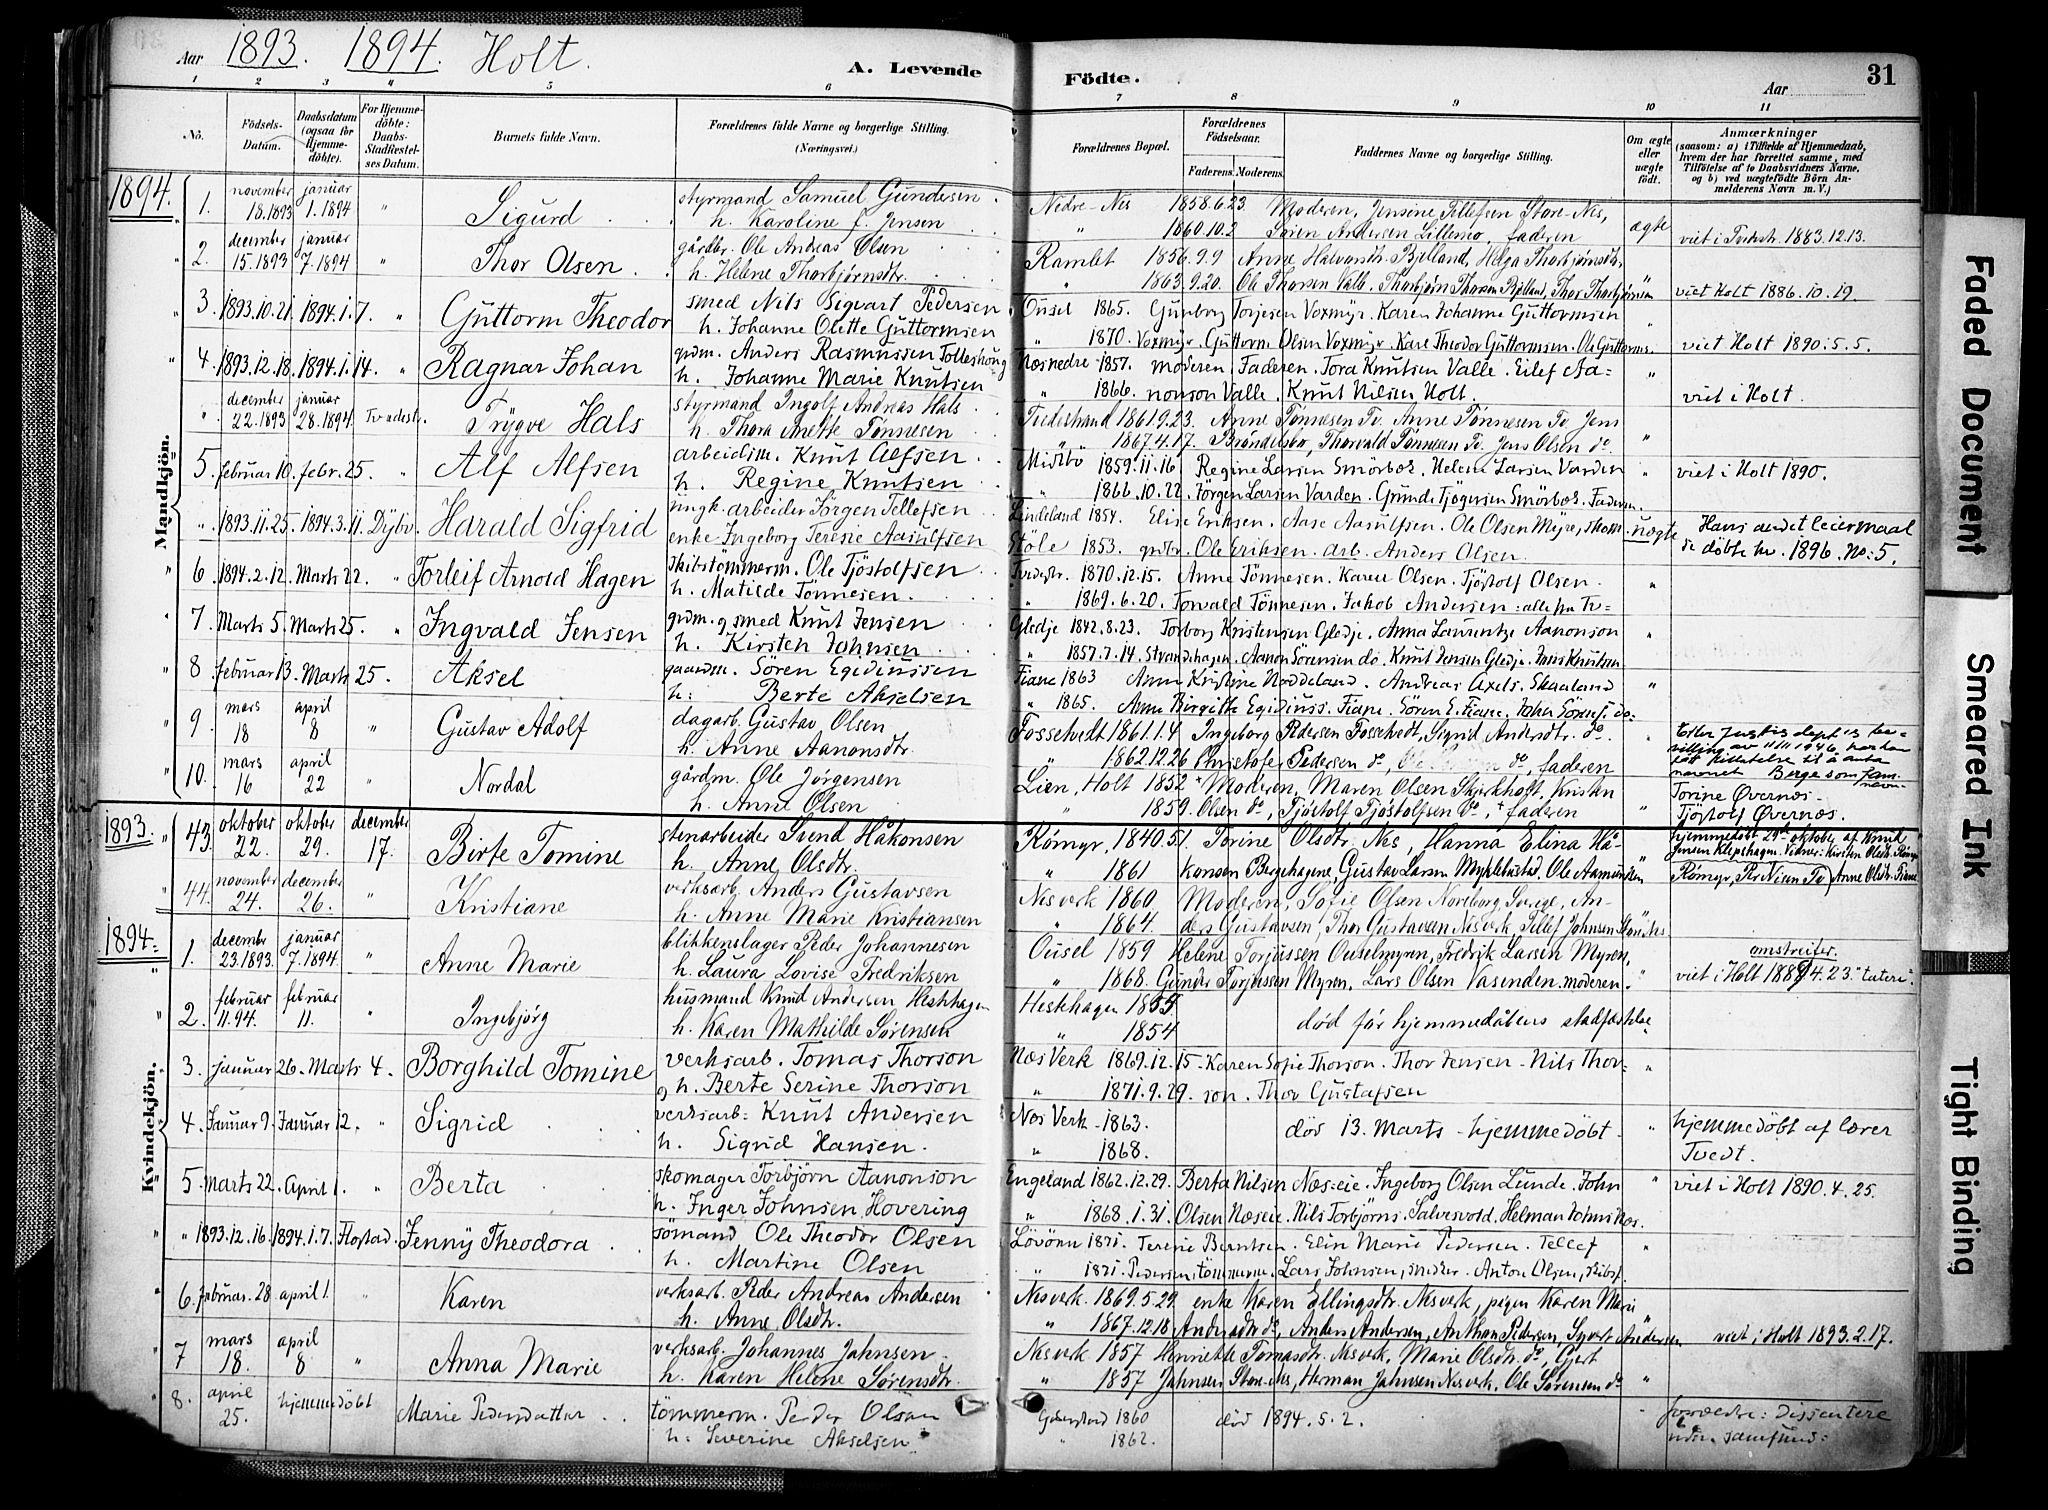 Aar 1893. 1894. Holt. A. Levende Födte. Aar 31
1 2 3 4 5 6 7 8 9 10 11
No. Födsels-Datum. Daabsdatum (ogsaa for Hjemmedöbte). For Hjemmedöbte: Daabs-Stadfæstelses Datum. Barnets fulde Navn. Forældrenes fulde Navne og borgerlige Stilling. (Næringsvei.) Forældrenes Bopæl. Forældrenes Födselsaar. Faderens. Moderens. Faddernes Navne og borgerlige Stilling. Om ægte eller uægte født. Anmærkninger (saasom: a) i Tilfælde af Hjemmedaab, hvem der har forrettet samme, med Tilföielse af to Daabsvidners Navne, og b) ved uægtefödte Börn Anmelderens Navn m. V.)
1894.
Mandkjön.
1. november 18.1893 januar 1.1894 " Sigurd styrmand Samuel Gundersen Nedre-Nes 1858.6.23 Moderen, Jensine Tellefsen Store-Nes,
h. Karoline f. Jensen " 1860.10.2 Søren Andersen Lillemo, faderen ægte viet i Tvedestr. 1883.12.13.
2. december 15.1893 januar 7.1894 " Thor Olsen gårdbr. Ole Andreas Olsen Ramlet 1856.9.9 Anne Halvorsdtr. Bjelland, Helga Thorbjørnsdtr.
h. Helene Thorbjørnsdtr. " 1863.9.20. Ole Thorsen Valb., Thorbjørn Thorsen Bjelland, Thor Thorbjørnsen " viet Holt 1886.10.19.
3. 1893.10.21. 1894.1.7. " Guttorm Theodor smed Nils Sigvart Pedersen Ousel 1865. Gunborg Torjesen Voxmyr. Karen Johanne Guttormsen
h. Johanne Olette Guttormsen " 1870. Voxmyr. Guttorm Olsen Voxmyr. Karl Theodor Guttormsen. Ole Guttorms. " viet Holt 1890.5.5.
4. 1893.12.18. 1894.1.14. " Ragnar Johan grdm. Anders Rasmussen Tolleshoug Næsnedre 1857. moderen. Faderen. Tora Knutsen Valle. Eilef Aa=
h. Johanne Marie Knutsen " 1866. nonson Valle. Knut Nilsen Holt. " viet i Holt.
" december 22.1893 januar 28.1894 Tvedestr. Trygve Hals styrmand Ingolf Andreas Hals 1861.9.23. Anne Tønnesen Tv. Anne Tønnesen Tv. Jens
h. Thora Anette Tønnesen " 1867.4.17. Thorvald Tønnesen Tv. Jens Olsen do. "
5. februar 10. febr. 25. " Alf Alfsen arbeidsm. Knut Alfsen Midtbö 1859.11.16. Regine Larsen Smörbok. Helene Larsen Varden " viet i Holt 1890.
h. Regine Knutsen " 1866.10.22. Jörgen Larsen Varden. Smörbok. Faderen.
" 1893.11.25. 1894.3.11. Dybv. Harald Sigfrid ungk. arbeider Jörgen Tellefsen Lindeland 1854. Elise Eriksen. Aase Aasulfsen. Ole Olsen Myre, uægte Hans andet leiermaal
enke Ingeborg Teresie Aasulfsen Stöle 1853. grdbr. Ole Eriksen. arb. Anders Olsen. se döbte kv. 1896. No: 5.
6 1894.2.12. Marts 22. " Torleif Arnold Hagen skibstömmerm. Ole Tjöstolfsen Tvedestr. 1870.12.15. Anne Tönnesen. Karen Olsen. Tjöstolf Olsen. "
h. Matilde Tönnesen. " 1869.6.20. Torvald Tönnesen. Jakob Andersen: alle fra Tv=
7 Marts 5. Marts 25. " Ingvald Jensen grdm. og smed Knut Jensen Gledje 1842.8.23. Torborg Kristensen Gledje. Anna Laurentze Aanonson "
h. Kirsten Johnsen " 1857.7.14. Strandehagen. Aanon Sörensen do. Knut Jensen Gledje. Jens Knutsen
8 februar 13. Marts 25. Aksel gaardm. Sören Egidiussen Fiane 1863 Anne Kristine Noddeland. Andreas Axels. Skaaland "
h: Berte Akselsen " 1865. Anne Birgitte Egidiuss. Fiane. Sören E. Fiane. John Sörens. do.
9 mars 18 april 8 " Gustav Adolf dagarb. Gustav Olsen Fossetvedt 1861.1.4 Ingeborg Pedersen Fossetvedt, Sigrid Andersdtr. do.
h. Anne Aanonsdtr. " 1862.12.26 Christofer Pedersen do, do, faderen
Etter justis dept's bevilling av 11/11 1946 har han fått tillatelse til å anta navnet Berge som familienavn
10. mars 16 april 22 " Nordal gårdm. Ole Jørgensen Lien, Holt 1852 Moderen, Maren Olsen Skjerkholt, Kristen Torine Øvernes.
h. Anne Olsen " 1859. Olsen do, Tjöstolf Tjöstolfsen do, faderen " Tjöstolf Øvernes.
1893.
43. oktober 22. oktober 29. december 17. Birte Tomine stenarbeider Svend Håkonsen Rømyr, 1840.5.1. Torine Olsdtr. Nes, Hanna Elina Hå- hjemmedøbt 29de oktober af Knud
Jensen Klepshagen. Vidner: Kirsten Olsdtr. Rømyr
h. Anne Olsdtr. " 1861 konsen Bergehagene, Gustav Larsen Myklebustad, Ole Aamundsen Rømyr, Anne Olsdtr. Fiane
44. november 24. december 26. " Kristiane verksarb. Anders Gustavsen Nesverk 1860 Moderen, Sofie Olsen Noreborg, Sverige, An-
h. Anne Marie Kristiansen " 1864. ders Gustavsen, Thor Gustavsen Nesverk, Tellef Johnsen
1894.
Kvindekjön.
1. december 23.1893. januar 7.1894. " Anne Marie blikkenslager Peder Johannesen Ousel 1859 Helene Torjussen Ouselmyren, Fredrik Larsen Myren, omstreifer.
h. Laura Lovise Fredriksen " 1868. Gunder Torjussen Myren, Lars Olsen Vasenden. moderen. " viet i Holt 1889.4.23. "tatere".
2. februar 11.94. februar 11. " Ingebjørg husmand Knud Andersen Heskhagen Heskehagen 1855
h. Karen Mathilde Sørensen " 1854 død før hjemmedåbens stadfæstelse "
3. januar 26. Marts 4. Borghild Tomine verksarb. Tomas Thorson Næs Verk 1869.12.15 Karen Sofie Thorson. Thor Jensen - Nils Thor= "
h. Berte Serine Thorson " 1871.9.29. son. Thor Gustafsen
4. Januar 9. Januar 12. " Sigrid verksarb: Knut Andersen Nes Verk - 1863. död 13. Marts - hjemmedöbt - " hjemmedöbt af lærer
h. Sigrid Hansen. " 1868. Tvedt.
5. Marts 22. April 1. " Berta skomager Torbjörn Aanonson Engeland 1862.12.29. Berta Nilsen Næs=eie. Ingeborg Olsen Lunde. John " viet i Holt 1890.4.25.
h. Inger Johnsen Hovering " 1868.1.31. Olsen Næseie. Nils Torbjörns. Salvesvold. Helman Johns. Næs.
" 1893.12.16. 1894.1.7. Flostad. Jenny Theodora sömand Ole Theodor Olsen Lövöen 1871. Terene Berntsen. Elin Marie Pedersen. Tellef "
h. Martine Olsen " 1871. Pedersen, tömmerm. Lars Johnsen, Anton Olsen,
6. februar. 28 april 1. " Karen verksarb. Peder Andreas Andersen Nesverk. 1869.5.29. enke Karen Ellingsdtr. Nesverk, pigen Karen Marie
h. Anne Olsdtr. " 1867.12.18 Andersdtr do, Anders Andersen, Anthon Pedersen, Syvert Andersen viet i Holt 1893.2.17.
7 mars 18. april 8 " Anna Marie verksarb. Johannes Jahnsen Nesverk 1857 Henriette Tomasdtr. Nesverk, Marie Olsdtr. do, Gjert
h. Karen Helene Sørensdtr. " 1857 Jahnsen Store-Nes, Herman Jahnsen Nesverk, Ole Sørensen do "
8. april 25. hjemmedöbt Marie Pedersdatter tömmerm. Peder Olsen 1860 död 1894.5.2. forældre: Dissentere
h: Severine Akselsen " 1862. uden samfund:
Faded Document
Smeared Ink
Tight Binding